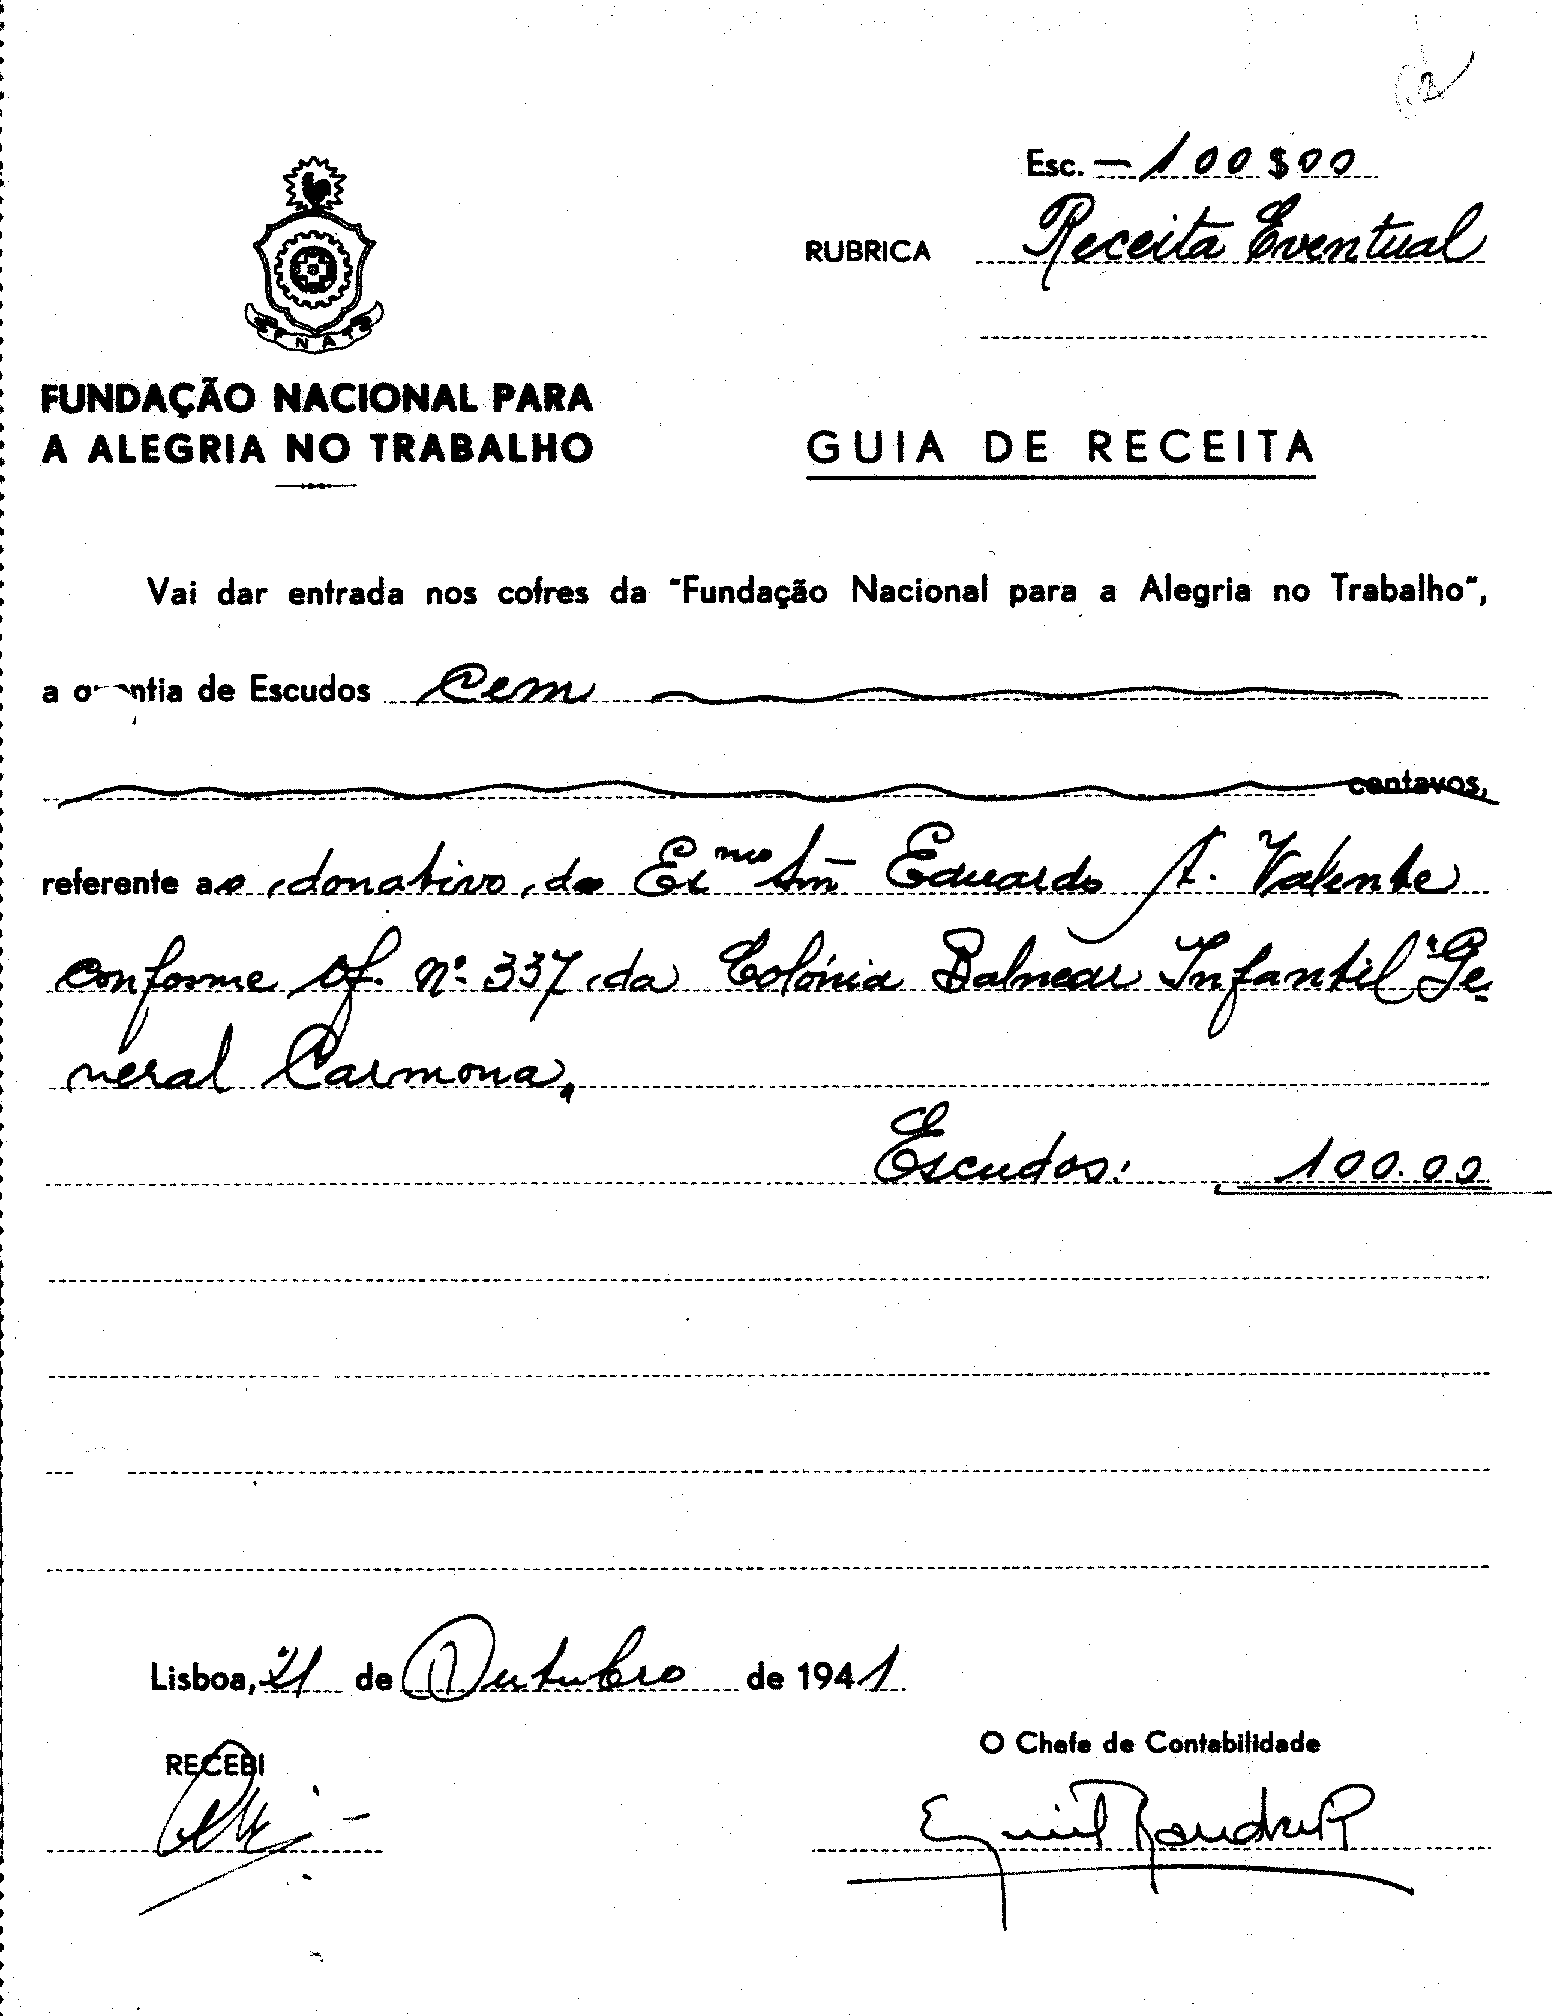 2
Esc. — 100$00
RUBRICA Receita Eventual
F N A T
FUNDAÇÃO NACIONAL PARA
A ALEGRIA NO TRABALHO
GUIA DE RECEITA
Vai dar entrada nos cofres da "Fundação Nacional para a Alegria no Trabalho",
a quantia de Escudos Cem
centavos,
referente ao donativo do Exmo Snr Eduardo A. Valente
conforme of. nº 337 da Colónia Balnear Infantil "Ge-
neral Carmona,
Escudos: 100.00
Lisboa, 21 de Outubro de 1941
RECEBI
O Chefe de Contabilidade